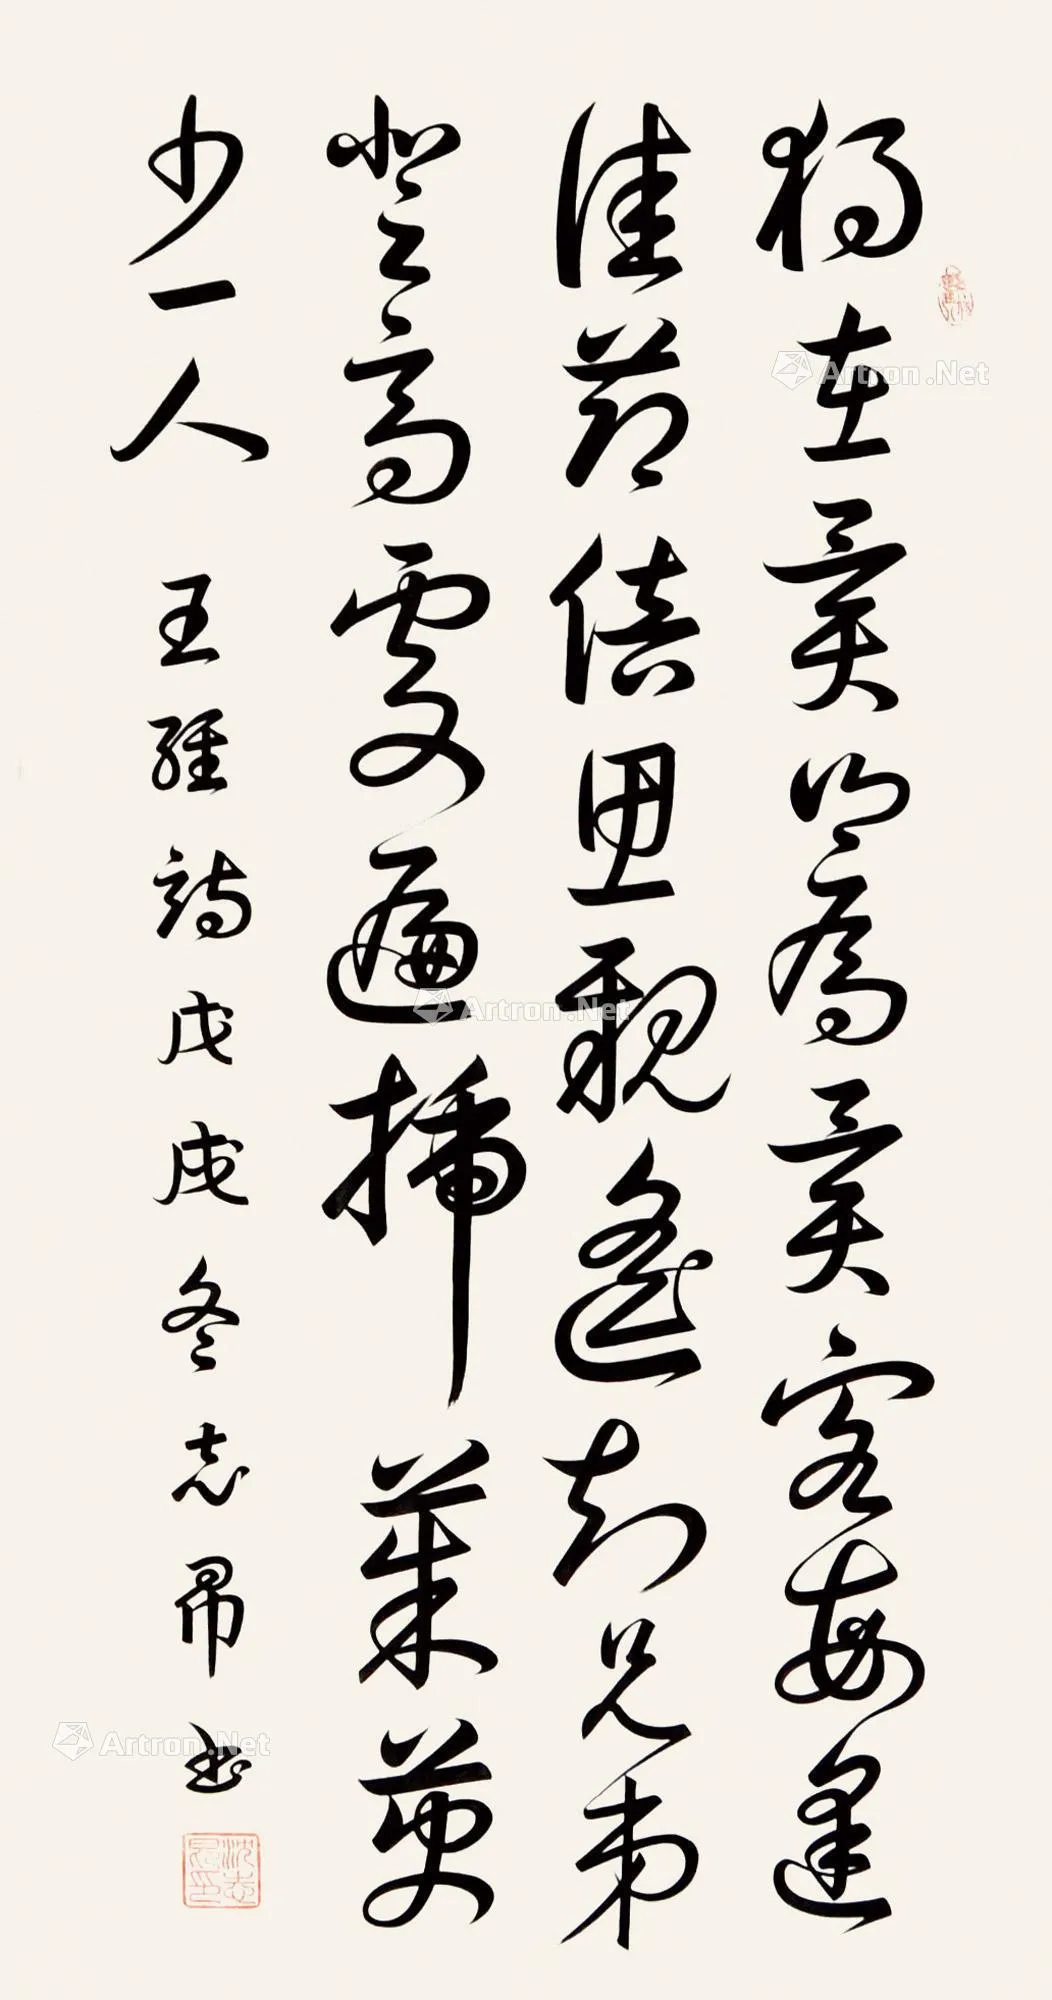 獨在異鄉為異客每逢
佳節倍思親遙知兄弟
登高處遍插茱萸
少一人 王維詩 戊戌冬志昂書
沈志昂印
Artron.Net
Artron.Net
Artron.Net